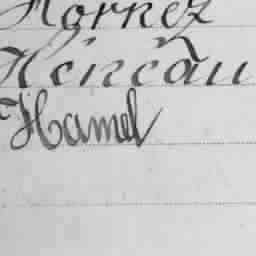 Hornez
Héneau
Hamel